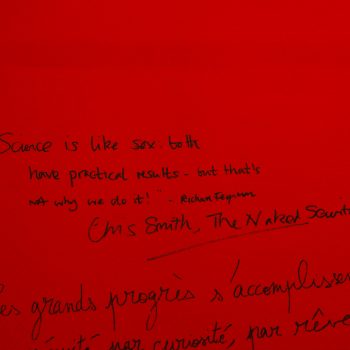 Science is like sex. both
have practical results - but that's
not why we do it!" - Richard Feynman
Chris Smith, The Naked Scientist
es grands progrès s'accomplisse
par curiosité, par rêve